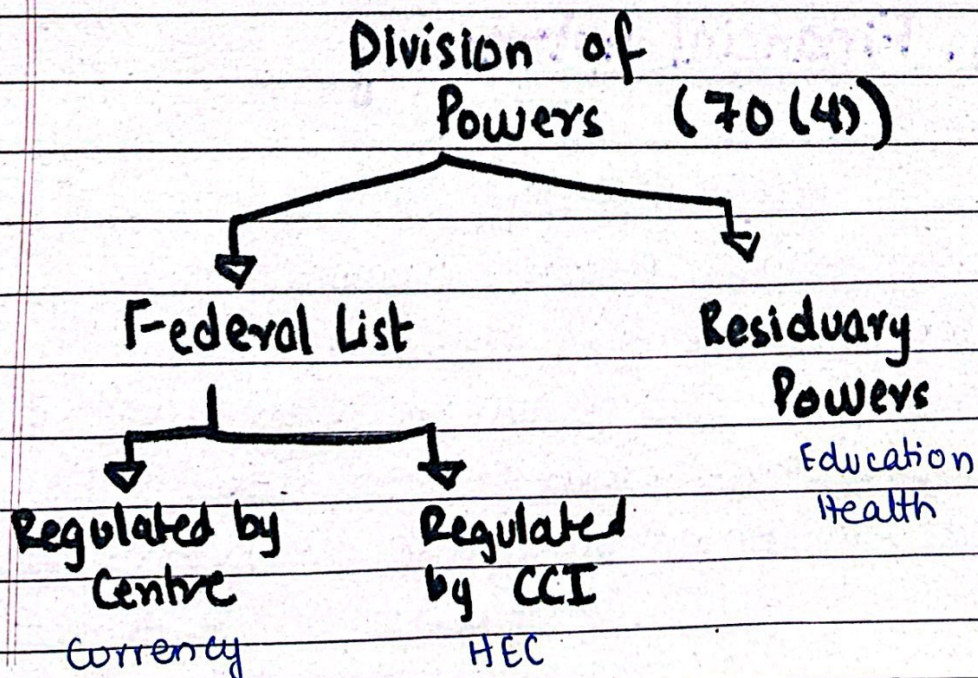 Division of
Powers (70(4))
Federal List
Residuary
Powers
Education
Health
Regulated by
Centre
Currency
Regulated
by CCI
HEC